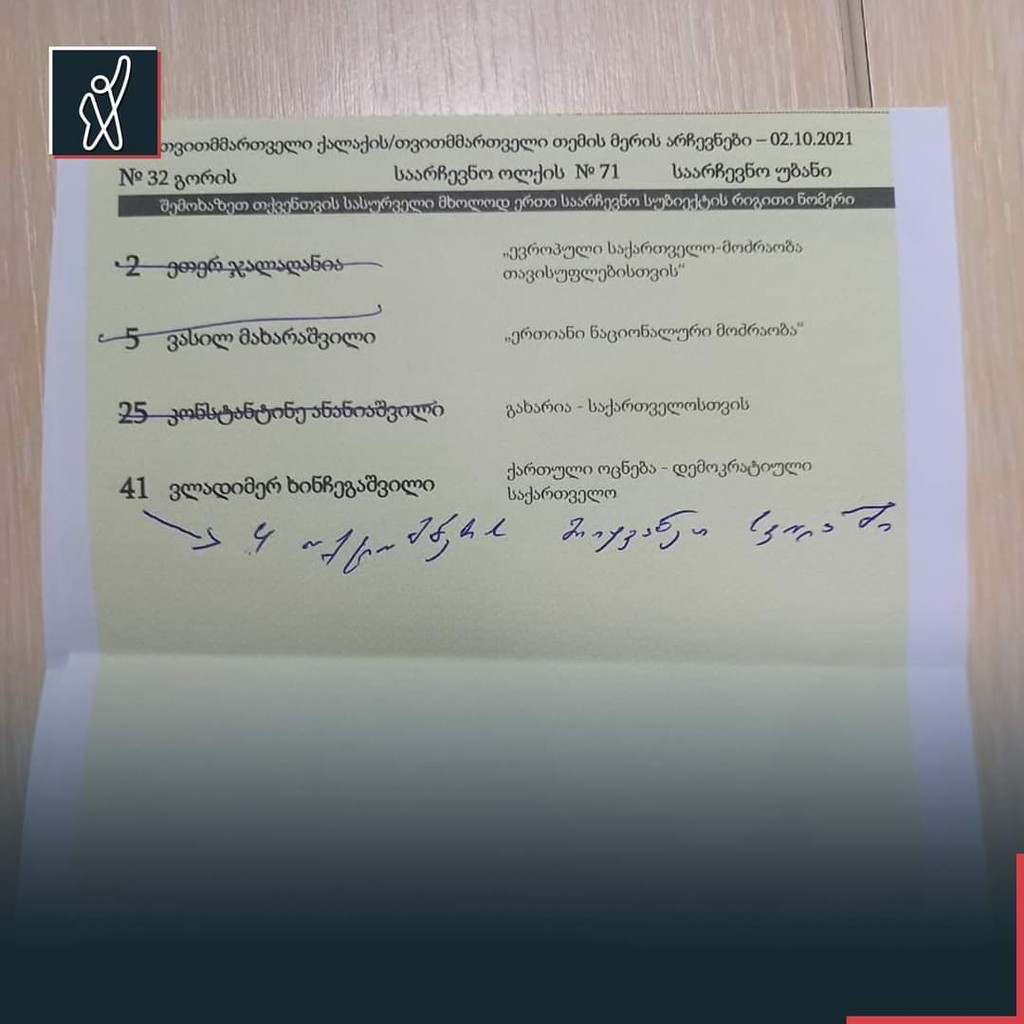 თვითმმართველი ქალაქის/თვითმმართველი თემის მერის არჩევნები – 02.10.2021
№ 32 გორის საარჩევნო ოლქის № 71 საარჩევნო უბანი
შემოხაზეთ თქვენთვის სასურველი მხოლოდ ერთი საარჩევნო სუბიექტის რიგითი ნომერი
2 ეთერ ჯალაღანია „ევროპული საქართველო-მოძრაობა
თავისუფლებისთვის“
5 ვასილ მახარაშვილი „ერთიანი ნაციონალური მოძრაობა“
25 კონსტანტინე ანანიაშვილი გახარია - საქართველოსთვის
41 ვლადიმერ ხინჩეგაშვილი ქართული ოცნება - დემოკრატიული
საქართველო
4 ოქტომბერს მოიყვანეთ